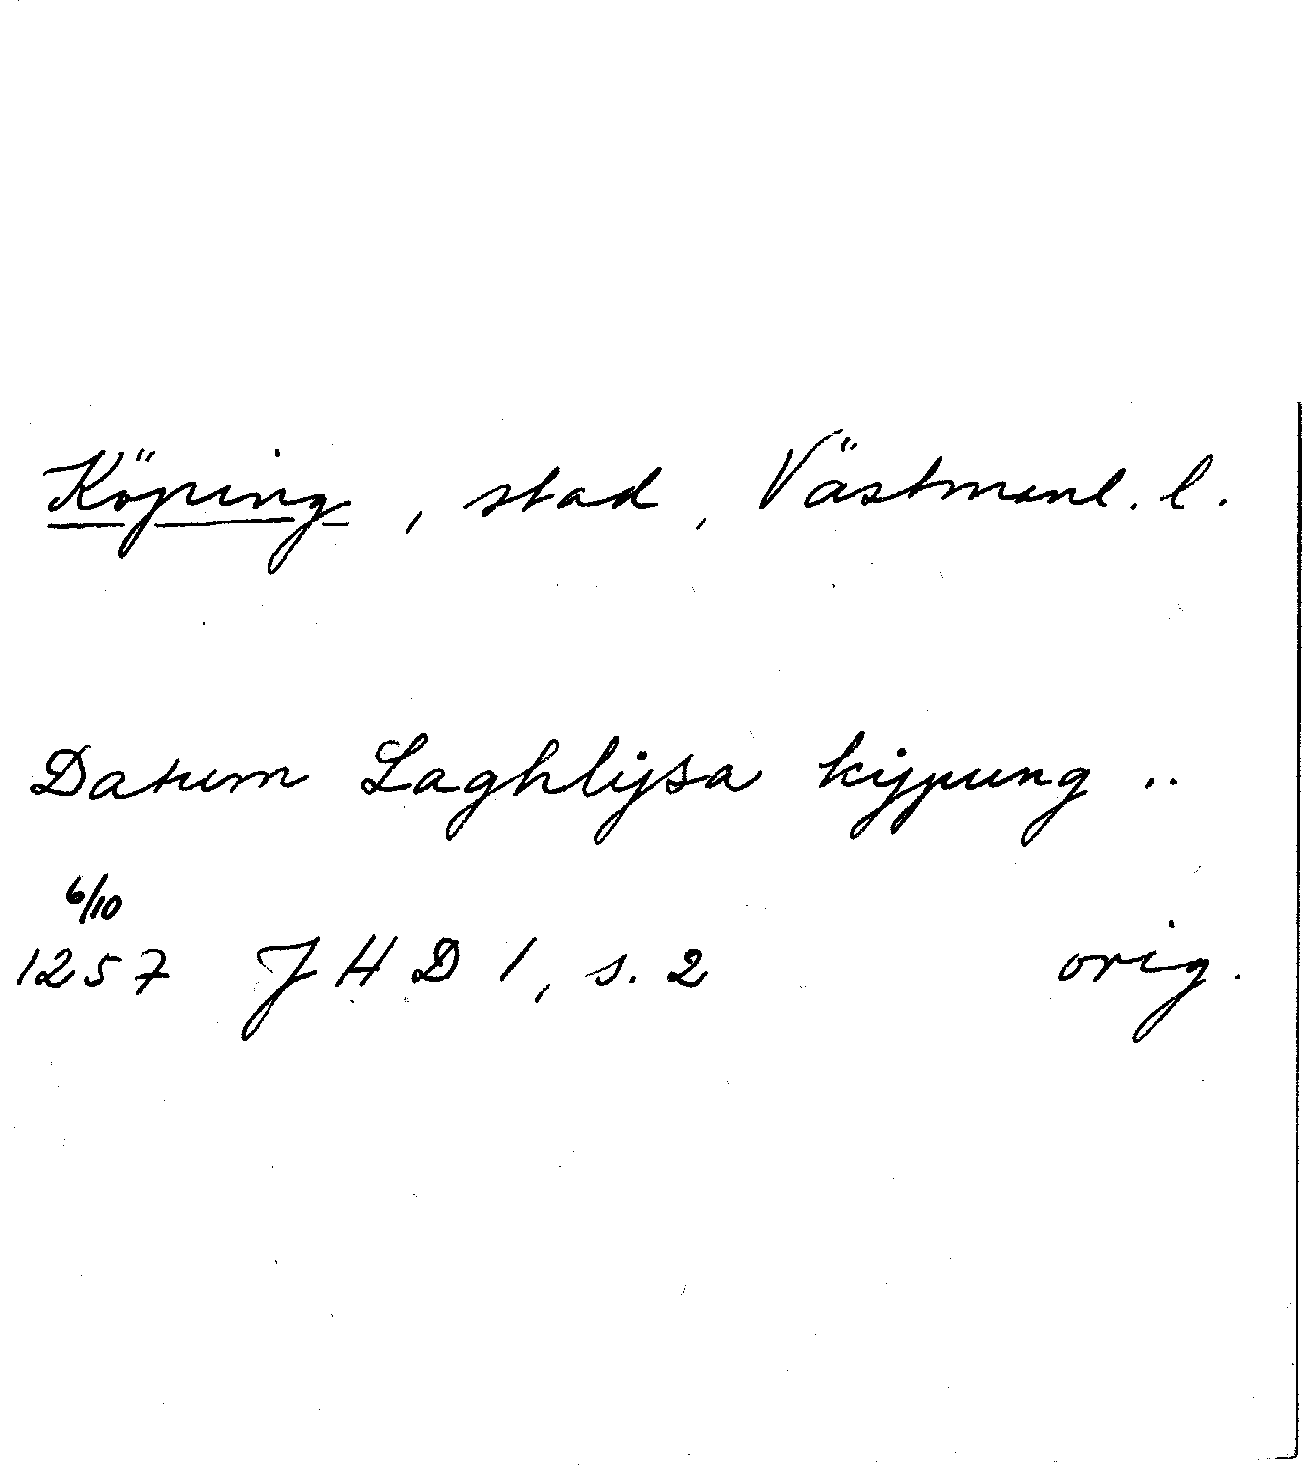 Köping, stad, Västmanl. l.
Datum Laghlijsa kijpung ..
6/10
1257 JHD 1, s. 2 orig.